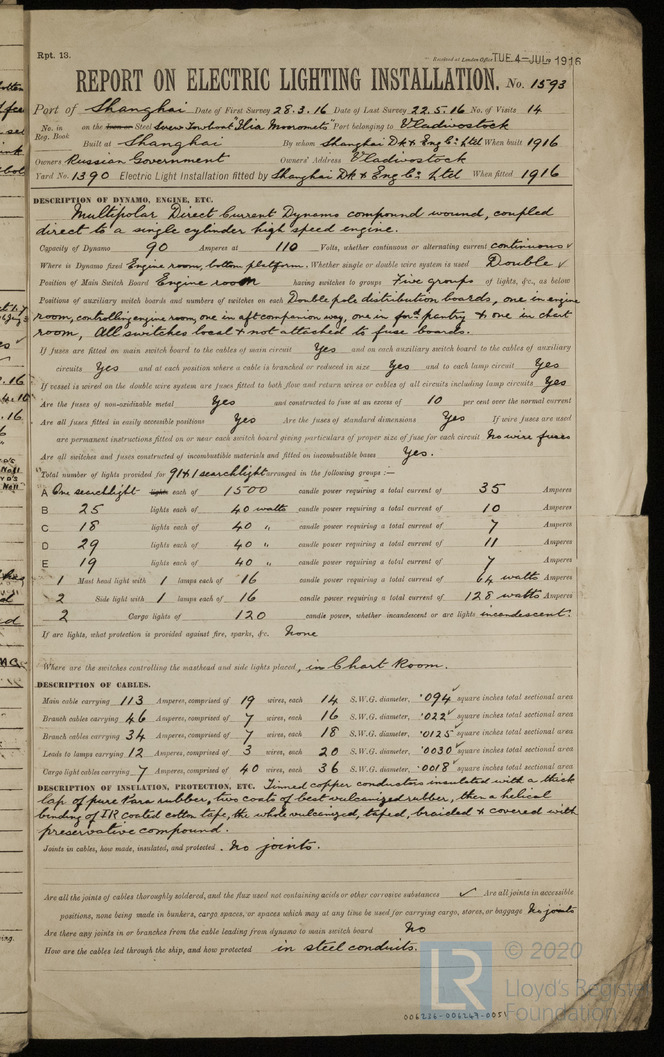 Rpt. 13.
Received at London Office TUE. 4 - JUL 1916
REPORT ON ELECTRIC LIGHTING INSTALLATION. No. 1593
Port of Shanghai Date of First Survey 28.3.16 Date of Last Survey 22.5.16 No. of Visits 14
No. in Reg. Book on the Iron or Steel Screw Towboat "Ilia Mourometz" Port belonging to Vladivostock
Built at Shanghai By whom Shanghai Dk & Eng Co Ltd When built 1916
Owners Russian Government Owners' Address Vladivostock
Yard No. 1390 Electric Light Installation fitted by Shanghai Dk & Eng Co Ltd When fitted 1916
DESCRIPTION OF DYNAMO, ENGINE, ETC.
Multipolar Direct Current Dynamo compound wound, coupled
direct to a single cylinder high speed engine.
Capacity of Dynamo 90 Amperes at 110 Volts, whether continuous or alternating current continuous ✓
Where is Dynamo fixed Engine room, bottom platform. Whether single or double wire system is used Double ✓
Position of Main Switch Board Engine room having switches to groups Five groups of lights, &c., as below
Positions of auxiliary switch boards and numbers of switches on each Double pole distribution boards, one in engine
room, controlling engine room, one in aft companion way, one in for'd pantry & one in chart
room, All switches local & not attached to fuse boards.
If fuses are fitted on main switch board to the cables of main circuit Yes and on each auxiliary switch board to the cables of auxiliary
circuits Yes and at each position where a cable is branched or reduced in size Yes and to each lamp circuit Yes
If vessel is wired on the double wire system are fuses fitted to both flow and return wires or cables of all circuits including lamp circuits Yes
Are the fuses of non-oxidizable metal Yes and constructed to fuse at an excess of 10 per cent over the normal current
Are all fuses fitted in easily accessible positions Yes Are the fuses of standard dimensions Yes If wire fuses are used
are permanent instructions fitted on or near each switch board giving particulars of proper size of fuse for each circuit No wire fuses
Are all switches and fuses constructed of incombustible materials and fitted on incombustible bases Yes.
Total number of lights provided for 91 + 1 searchlight arranged in the following groups :—
A One searchlight lights each of 1500 candle power requiring a total current of 35 Amperes
B 25 lights each of 40 watts candle power requiring a total current of 10 Amperes
C 18 lights each of 40 " candle power requiring a total current of 7 Amperes
D 29 lights each of 40 " candle power requiring a total current of 11 Amperes
E 19 lights each of 40 " candle power requiring a total current of 7 Amperes
1 Mast head light with 1 lamps each of 16 candle power requiring a total current of 64 watts Amperes
2 Side light with 1 lamps each of 16 candle power requiring a total current of 128 watts Amperes
2 Cargo lights of 120 candle power, whether incandescent or arc lights incandescent.
If arc lights, what protection is provided against fire, sparks, &c. None
Where are the switches controlling the masthead and side lights placed, in Chart Room.
DESCRIPTION OF CABLES.
Main cable carrying 113 Amperes, comprised of 19 wires, each 14 S.W.G. diameter, .094 ✓ square inches total sectional area
Branch cables carrying 46 Amperes, comprised of 7 wires, each 16 S.W.G. diameter, .022 ✓ square inches total sectional area
Branch cables carrying 34 Amperes, comprised of 7 wires, each 18 S.W.G. diameter, .0125 ✓ square inches total sectional area
Leads to lamps carrying 12 Amperes, comprised of 3 wires, each 20 S.W.G. diameter, .0030 ✓ square inches total sectional area
Cargo light cables carrying 7 Amperes, comprised of 40 wires, each 36 S.W.G. diameter, .0018 ✓ square inches total sectional area
DESCRIPTION OF INSULATION, PROTECTION, ETC. Tinned copper conductors insulated with a thick
lap of pure Para rubber, two coats of best vulcanized rubber, then a helical
binding of IR coated cotton tape, the whole vulcanized, taped, braided & covered with
preservative compound.
Joints in cables, how made, insulated, and protected. No joints.
Are all the joints of cables thoroughly soldered, and the flux used not containing acids or other corrosive substances ✓ Are all joints in accessible
positions, none being made in bunkers, cargo spaces, or spaces which may at any time be used for carrying cargo, stores, or baggage No joints
Are there any joints in or branches from the cable leading from dynamo to main switch board No
How are the cables led through the ship, and how protected in steel conduits.
© 2020
Lloyd's Register
Foundation
LR
006236-006247-0051